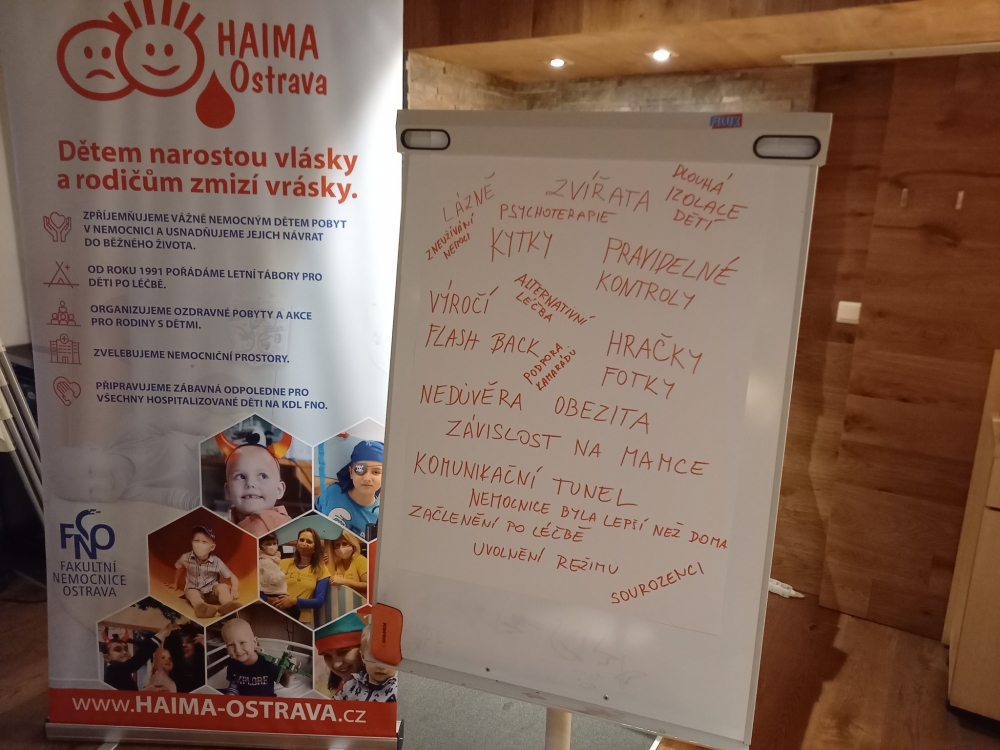 HAIMA
Ostrava
Dětem narostou vlásky
a rodičům zmizí vrásky.
ZPŘÍJEMŇUJEME VÁŽNĚ NEMOCNÝM DĚTEM POBYT
V NEMOCNICI A USNADŇUJEME JEJICH NÁVRAT
DO BĚŽNÉHO ŽIVOTA.
OD ROKU 1991 POŘÁDÁME LETNÍ TÁBORY PRO
DĚTI PO LÉČBĚ.
ORGANIZUJEME OZDRAVNÉ POBYTY A AKCE
PRO RODINY S DĚTMI.
ZVELEBUJEME NEMOCNIČNÍ PROSTORY.
PŘIPRAVUJEME ZÁBAVNÁ ODPOLEDNE PRO
VŠECHNY HOSPITALIZOVANÉ DĚTI NA KDL FNO.
FNO
FAKULTNÍ
NEMOCNICE
OSTRAVA
EXPLORE
www.HAIMA-OSTRAVA.cz
LÁZNĚ
ZVÍŘATA
DLOUHÁ
IZOLACE
DĚTÍ
PSYCHOTERAPIE
ZNEUŽÍVÁNÍ
NEMOCI
KYTKY
PRAVIDELNÉ
KONTROLY
ALTERNATIVNÍ
LÉČBA
VÝROČÍ
FLASH BACK
PODPORA
KAMARÁDŮ
HRAČKY
FOTKY
NEDŮVĚRA
OBEZITA
ZÁVISLOST NA MAMCE
KOMUNIKAČNÍ TUNEL
NEMOCNICE BYLA LEPŠÍ NEŽ DOMA
ZAČLENĚNÍ PO LÉČBĚ
UVOLNĚNÍ REŽIMU
SOUROZENCI